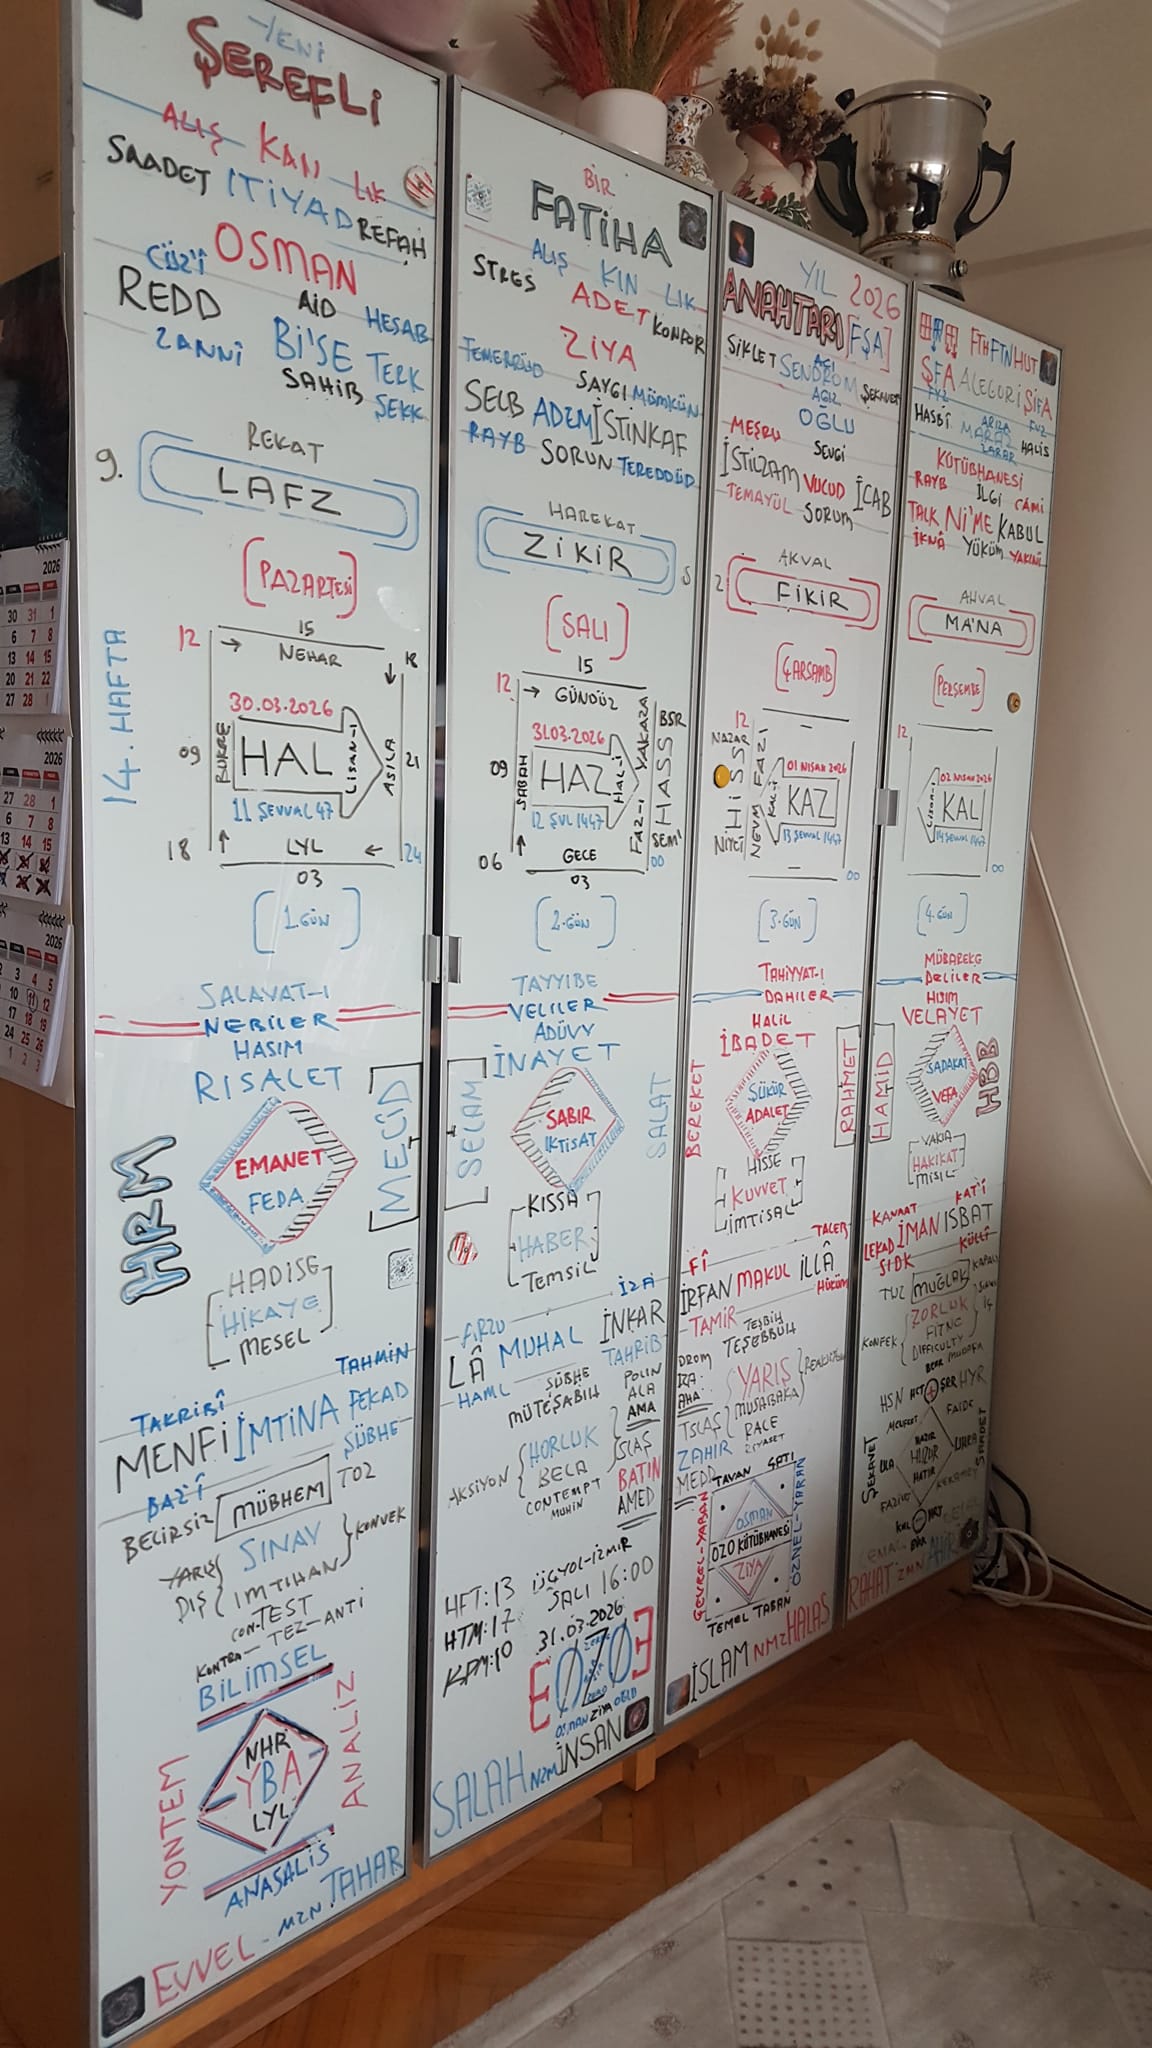 YENİ
ŞEREFLİ
ALIŞ KAN LIK
SAADET İTİYAD REFAH
OSMAN
CÜZ'Î
REDD AİD HESAB
ZANNÎ Bİ'SE TERK
SAHİB ŞEKK
REKAT
9. LAFZ
[PAZARTESİ]
14. HAFTA
12 15 18
NEHAR
30.03.2026
09 BUKRE HAL LİSAN-I ASILA 21
11 ŞEVVAL 47
18 LYL 24
03
[1.GÜN]
SALAVAT-I
NEBİLER
HASIM
RISALET
HRM
MECİD
EMANET
FEDA
HADİSE
HİKAYE
MESEL
TAHMİN
TAKRİBÎ
MENFİ İMTİNA FEKAD
BAZ'I ŞÜBHE
BELİRSİZ MÜBHEM TOZ
YARIŞ SINAV KONVEK
DIŞ İMTİHAN
CON-TEST
KONTRA-TEZ-ANTİ
BİLİMSEL
YÖNTEM ANALİZ
NHR
YBA
LYL
ANASALİS
EVVEL-MZN.TAHAR
BİR
FATİHA
ALIŞ KIN LIK
STRES ADET KONFOR
ZİYA
TEMERRÜD SAYGI MÜMKÜN
SELB ADEM İSTİNKAF
RAYB SORUN TEREDDÜD
HAREKAT
ZİKİR
[SALI]
15
12 GÜNDÜZ
31.03.2026
09 SABAH HAZ HAL-İ
FAZ-I YAKAZA
BSR
HASS
SEM'
12 ŞVL 1447
06 GECE 00
03
[2.GÜN]
TAYYIBE
VELİLER
ADÜVV
İNAYET
SELAM
SALAT
SABIR
İKTİSAT
KISSA
HABER
TEMSİL
İZA
FIRZU
LÂ MUHAL İNKAR
HAML TAHRİB
ŞÜBHE
MÜTEŞABİH
POLİN
ALA
AMA
AKSİYON HORLUK
BELA
CONTEMPT
MUHİN
ISLAŞ
BATIN
AMED
HFT:13
HTM:17
KPM:10
ÜÇYOL-İZMİR
SALI 16:00
31.03.2026
E0703
OSMAN ZİYA OĞLU
SALAH NZM İNSAN
YIL 2026
ANAHTARI [FŞA]
SİKLET SENDROM
OĞLU
MEŞRU SEVGİ
İSTİLZAM VUCUD İCAB
TEMAYÜL SORUM
AKVAL
FİKİR
[ÇARŞAMB]
12
NAZAR
HİSS
NİYET
NEVM FAZI
01 NİSAN 2026
KAL-İ KAZ
13 ŞEVVAL 1447
00
[3.GÜN]
TAHİYYAT-I
DAHİLER
HALİL
İBADET
BEREKET
RAHMET
ŞÜKÜR
ADALET
HİSSE
KUVVET
İMTİSAL
TALEB
FÎ
İRFAN MAKUL İLLÂ
TAMİR HÜKÜM
TEŞBİH
TEŞEBBÜH
DROM
AHA
YARIŞ
MUSABAKA
RACE
ZİYASET
ZAHİR
MEDD
TAVAN ÇATI
OSMAN
OZO KÜTÜBHANESİ
ZİYA
TEMEL TABAN
ÇEVREL-YABAN
ÖZNEL-YARAN
İSLAM NMZ HALAS
FTH FTN HUT
ŞFA ALEGORİ ŞİFA
HASBİ ARIZA
MARAZ HALİS
ZARAR
KÜTÜBHANESİ
RAYB İLGİ CAMİ
TALK Nİ'ME KABUL
İKNÂ YÜKÜM YAKINİ
AHVAL
MA'NA
[PERŞEMBE]
12
02 NİSAN 2026
LİSAN-I KAL
14 ŞEVVAL 1447
00
[4.GÜN]
MÜBAREKG
DELİLER
HISIM
VELAYET
HAMİD
HBB
SADAKAT
VEFA
VAKIA
HAKİKAT
MİSİL
KANAAT KAT'İ
LEKAD İMAN İSBAT
SIDK KÜLLÎ
TUZ MUĞLAK KAPALI
ZORLUK
KONFEK FITNC
DIFFICULTY
HSN HCT ŞRR HYR
MENFEAT FAİDE
HAZIR
HUZUR
HATIR
ŞEKAVET
SAADET
RAHAT ZMN AHİR